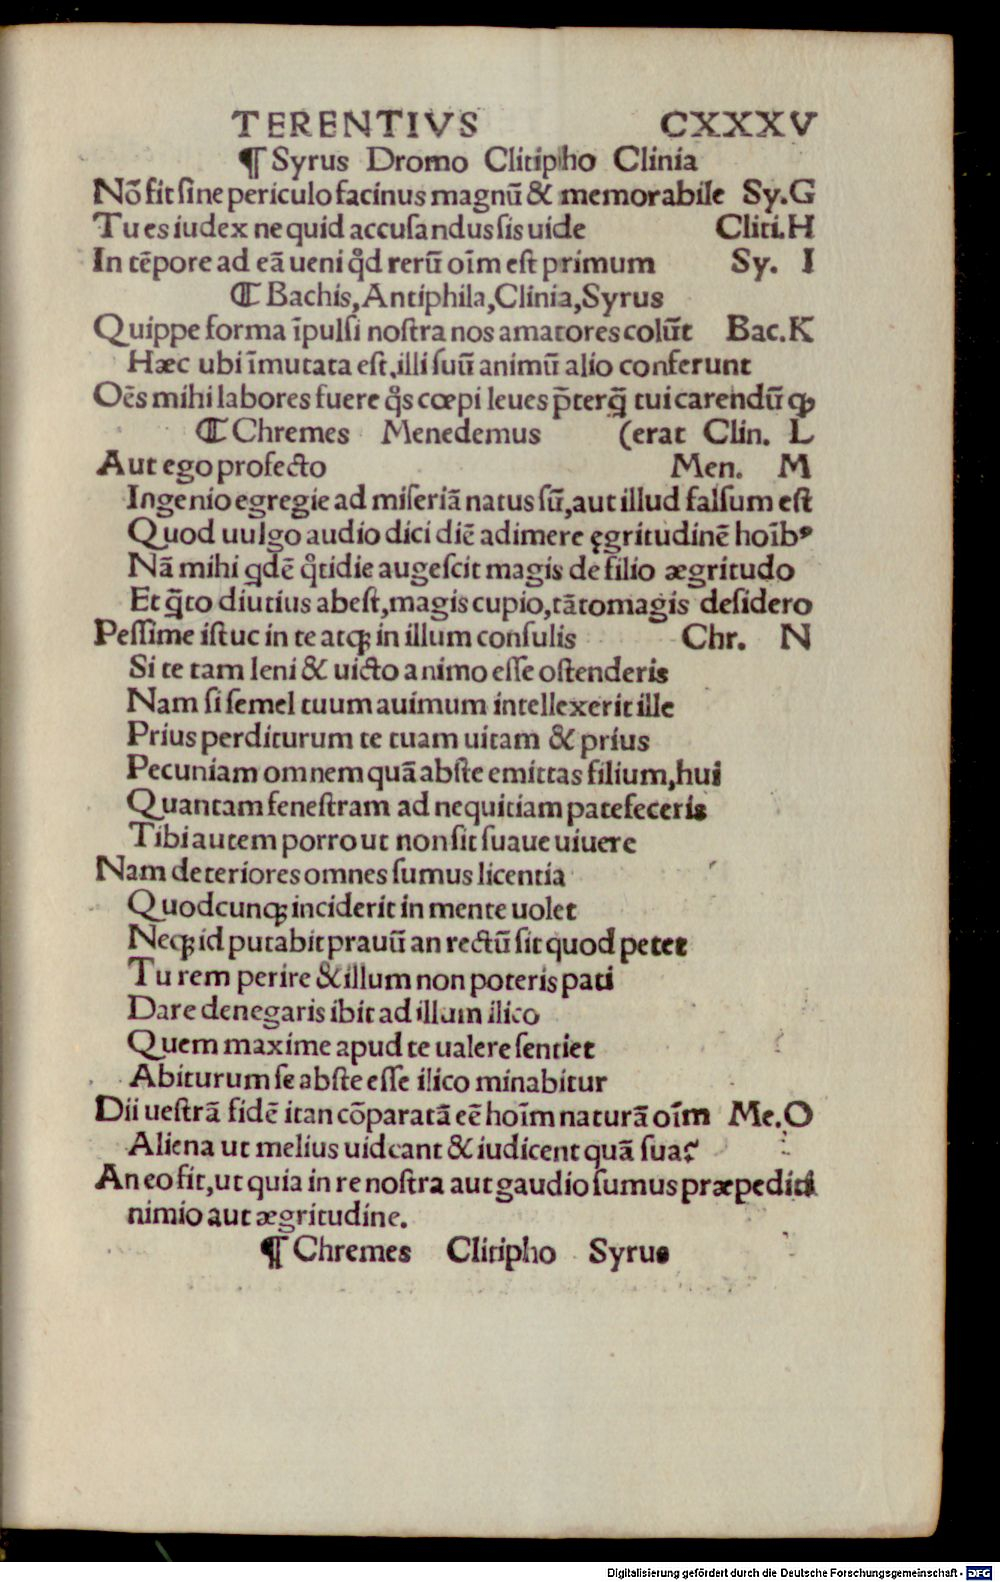 TERENTIVS CXXXV
¶ Syrus Dromo Clitipho Clinia
Nõ fit ſine periculo facinus magnũ & memorabile Sy.G
Tu es iudex ne quid accuſandus ſis uide Cliti.H
In tẽpore ad eã ueni qd̉ rerũ oĩm eſt primum Sy. I
⁋ Bachis, Antiphila, Clinia, Syrus
Quippe forma ĩpulſi noſtra nos amatores colũt Bac.K
Hæc ubi ĩmutata eſt, illi ſuũ animũ alio conferunt
Oẽs mihi labores fuere qͦs cœpi leues p̃terq̃ tui carendũ ꝙ
⁋ Chremes Menedemus (erat Clin. L
Aut ego profecto Men. M
Ingenio egregie ad miſeriã natus ſũ, aut illud falſum eſt
Quod uulgo audio dici diẽ adimere ęgritudinẽ hoĩbꝰ
Nã mihi qdẽ qͦtidie augeſcit magis de filio ægritudo
Et q̃to diutius abeſt, magis cupio, tãtomagis deſidero
Peſſime iſtuc in te atqꝫ in illum conſulis Chr. N
Si te tam leni & uicto animo eſſe oſtenderis
Nam ſi ſemel tuum auimum intellexerit ille
Prius perditurum te tuam uitam & prius
Pecuniam omnem quã abſte emittas filium, hui
Quantam feneſtram ad nequitiam patefeceris
Tibi autem porro ut non ſit ſuaue uiuere
Nam deteriores omnes ſumus licentia
Quodcunqꝫ inciderit in mente uolet
Neqꝫ id putabit prauũ an rectũ ſit quod petet
Tu rem perire & illum non poteris pati
Dare denegaris ibit ad illum ilico
Quem maxime apud te ualere ſentiet
Abiturum ſe abſte eſſe ilico minabitur
Dii ueſtrã fidẽ itan cõparatã eẽ hoĩm naturã oĩm Me.O
Aliena ut melius uideant & iudicent quã ſua?
An eo fit, ut quia in re noſtra aut gaudio ſumus præpediti
nimio aut ægritudine.
¶ Chremes Clitipho Syrus
Digitalisierung gefördert durch die Deutsche Forschungsgemeinschaft - DFG